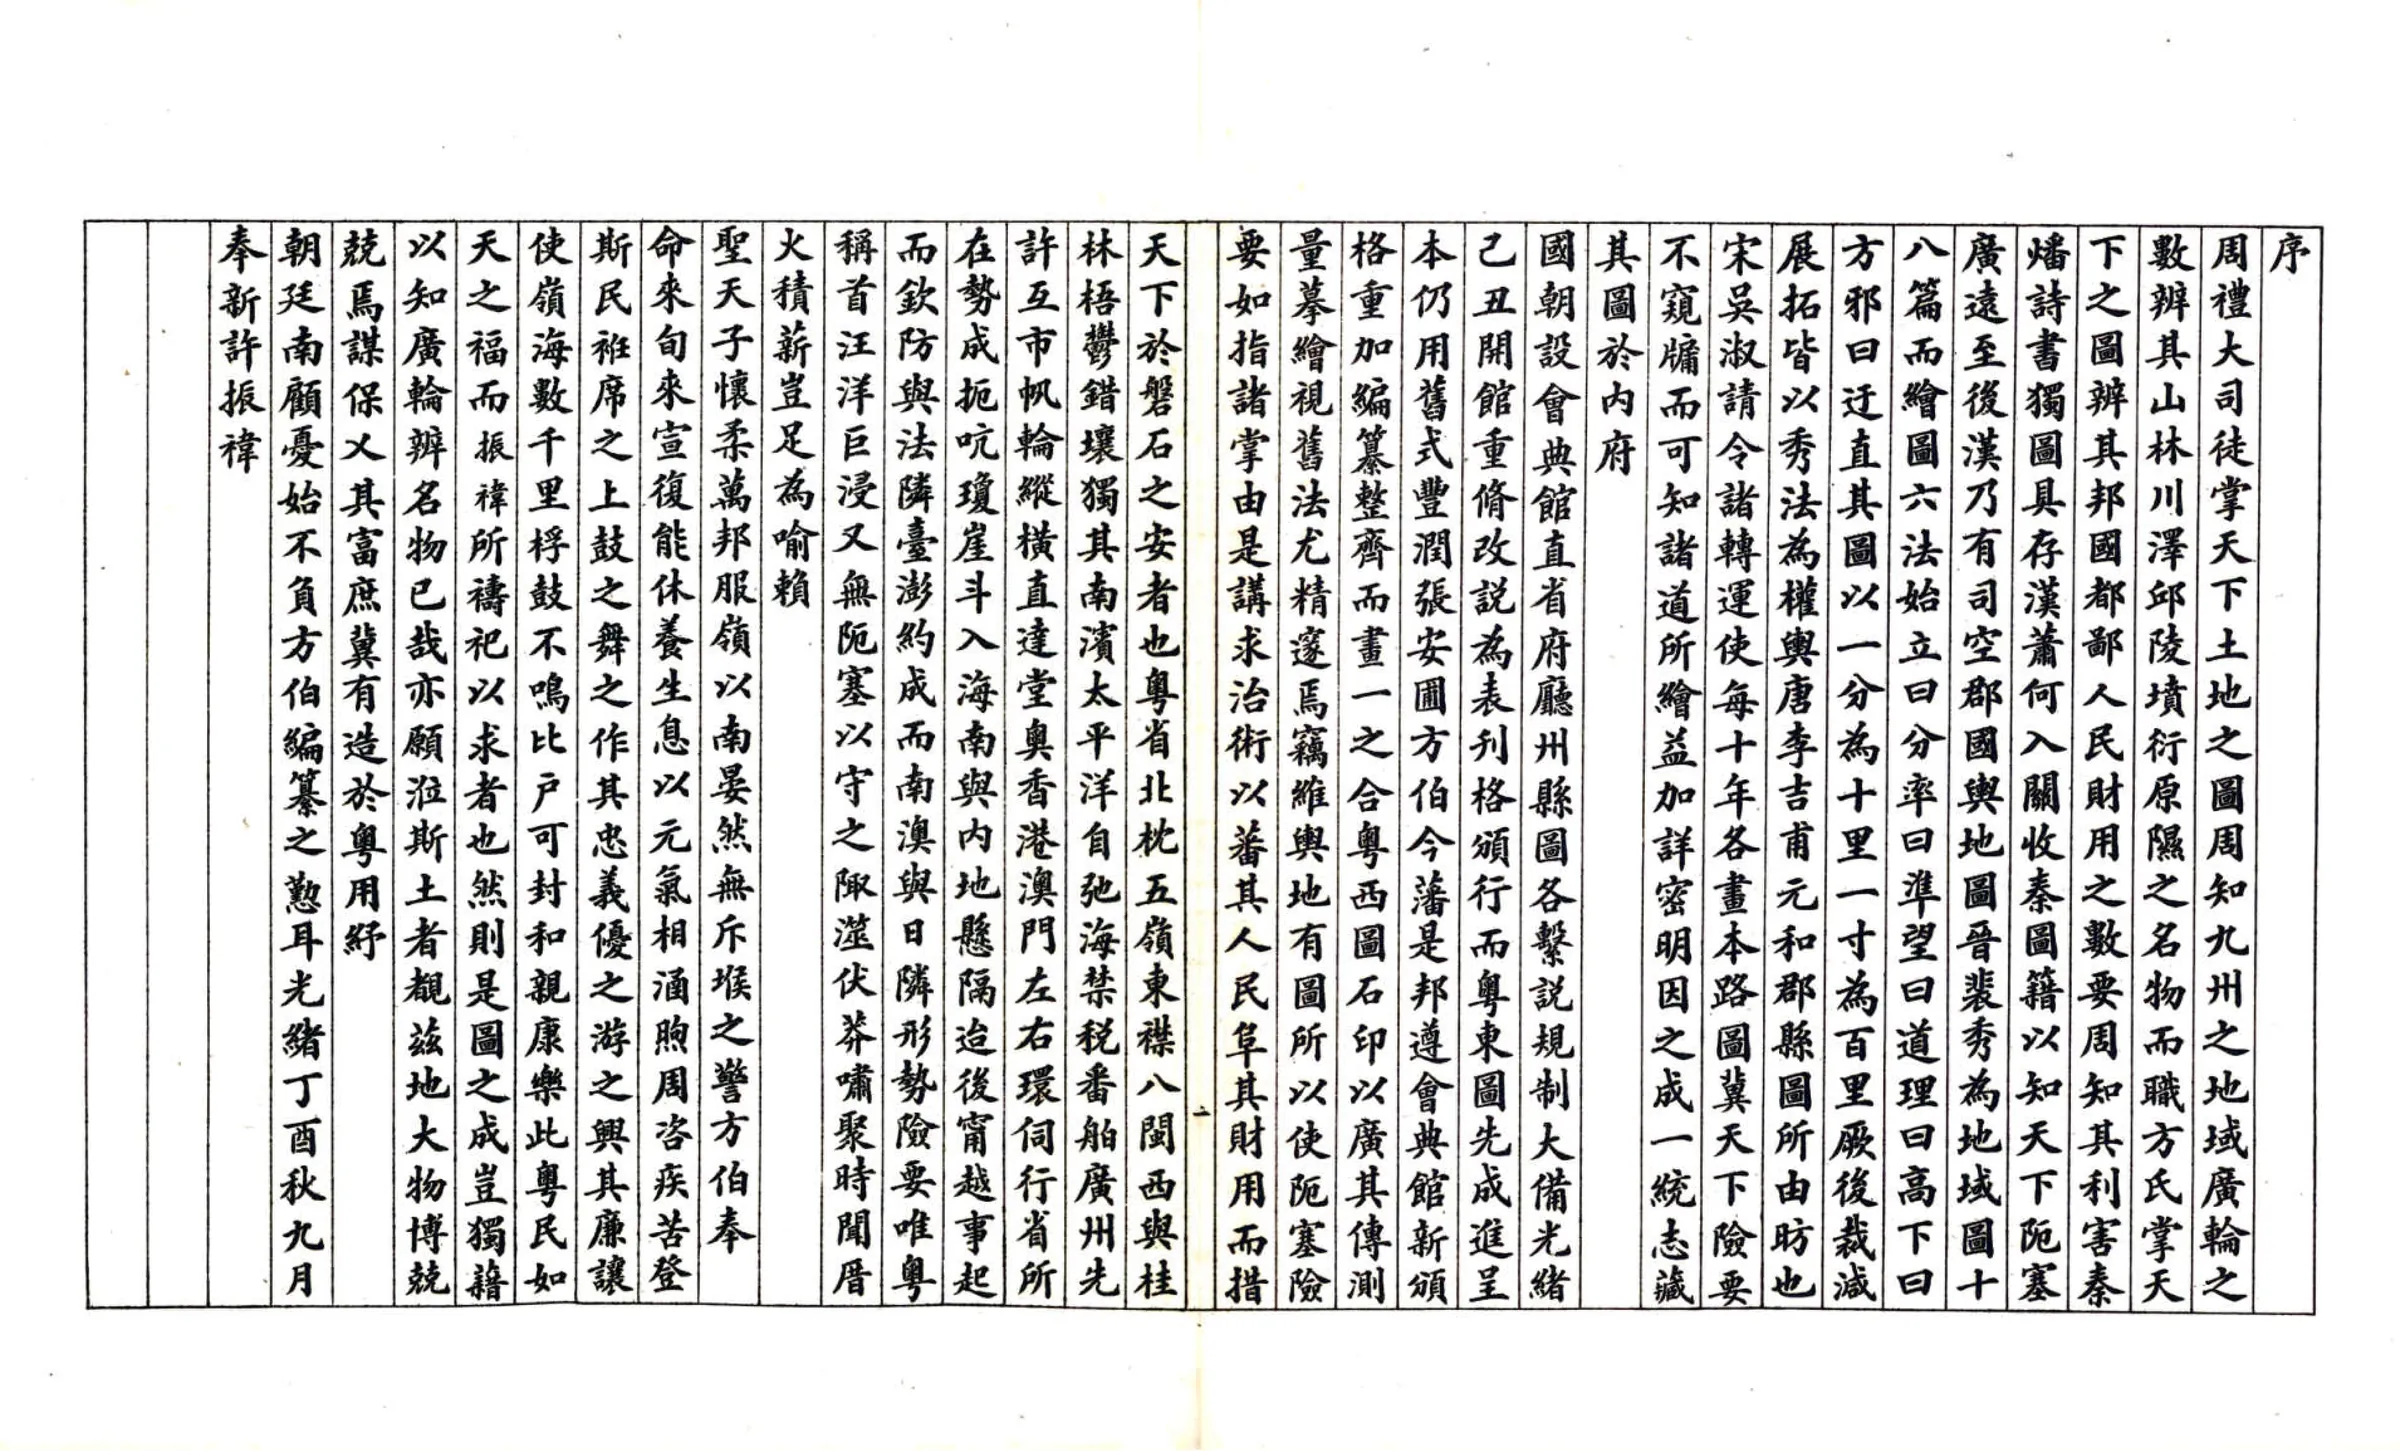 序
周禮大司徒掌天下土地之圖周知九州之地域廣輪之
數辨其山林川澤邱陵墳衍原隰之名物而職方氏掌天
下之圖辨其邦國都鄙人民財用之數要周知其利害秦
燔詩書獨圖具存漢蕭何入關收秦圖籍以知天下阨塞
廣遠至後漢乃有司空郡國輿地圖晉裴秀為地域圖十
八篇而繪圖六法始立曰分率曰準望曰道理曰高下曰
方邪曰迂直其圖以一分為十里一寸為百里厥後裁減
展拓皆以秀法為權輿唐李吉甫元和郡縣圖所由昉也
宋吳淑請令諸轉運使每十年各畫本路圖冀天下險要
不窺牖而可知諸道所繪益加詳密明因之成一統志藏
其圖於內府
國朝設會典館直省府廳州縣圖各繫説規制大備光緒
己丑開館重脩改説為表刋格頒行而粵東圖先成進呈
本仍用舊式豐潤張安圃方伯今藩是邦遵會典館新頒
格重加編纂整齊而畫一之合粵西圖石印以廣其傳測
量摹繪視舊法尤精邃焉竊維輿地有圖所以使阨塞險
要如指諸掌由是講求治術以蕃其人民阜其財用而措
天下於磐石之安者也粵省北枕五嶺東襟八閩西與桂
林梧鬱錯壤獨其南濱太平洋自弛海禁税番舶廣州先
許互市帆輪縱橫直達堂奧香港澳門左右環伺行省所
在勢成扼吭瓊崖斗入海南與內地懸隔迨後甯越事起
而欽防與法隣臺澎約成而南澳與日隣形勢險要唯粵
稱首汪洋巨浸又無阨塞以守之陬澨伏莽嘯聚時聞厝
火積薪豈足為喻賴
聖天子懷柔萬邦服嶺以南晏然無斥堠之警方伯奉
命來旬來宣復能休養生息以元氣相涵煦周咨疾苦登
斯民袵席之上鼓之舞之作其忠義優之游之興其廉讓
使嶺海數千里桴鼓不鳴比戶可封和親康樂此粵民如
天之福而振禕所禱祀以求者也然則是圖之成豈獨藉
以知廣輪辨名物已哉亦願涖斯土者覩茲地大物博兢
兢焉謀保乂其富庶冀有造於粵用紓
朝廷南顧憂始不負方伯編纂之懃耳光緒丁酉秋九月
奉新許振禕
二